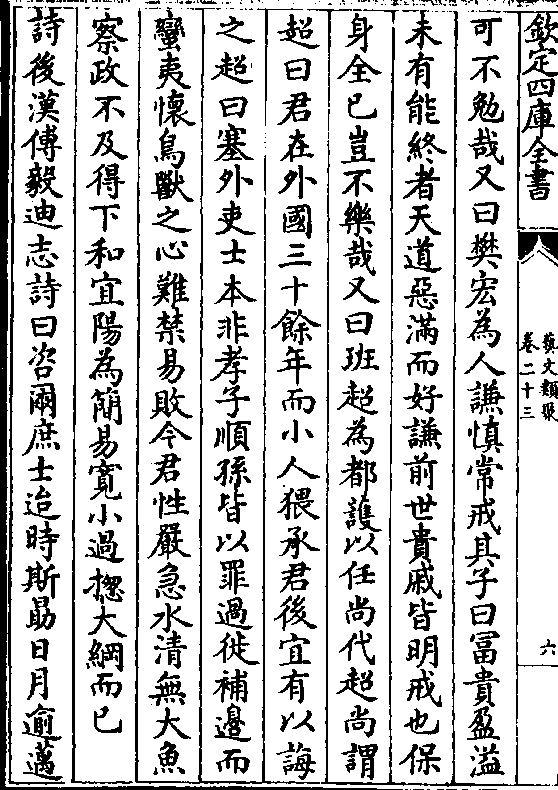 欽定四庫全書
藝文類聚
卷二十三
六
可不勉哉又曰樊宏為人謙慎常戒其子曰冨貴盈溢
未有能終者天道惡滿而好謙前世貴戚皆明戒也保
身全已豈不樂哉又曰班超為都護以任尚代超尚謂
超曰君在外國三十餘年而小人猥承君後宜有以誨
之超曰塞外吏士本非孝子順孫皆以罪過徙補邊而
蠻夷懷鳥獸之心難禁易敗今君性嚴急水清無大魚
察政不及得下和宜陽為簡易寛小過揔大綱而已
詩後漢傅毅迪志詩曰咨爾庶士迨時斯勗日月逾邁